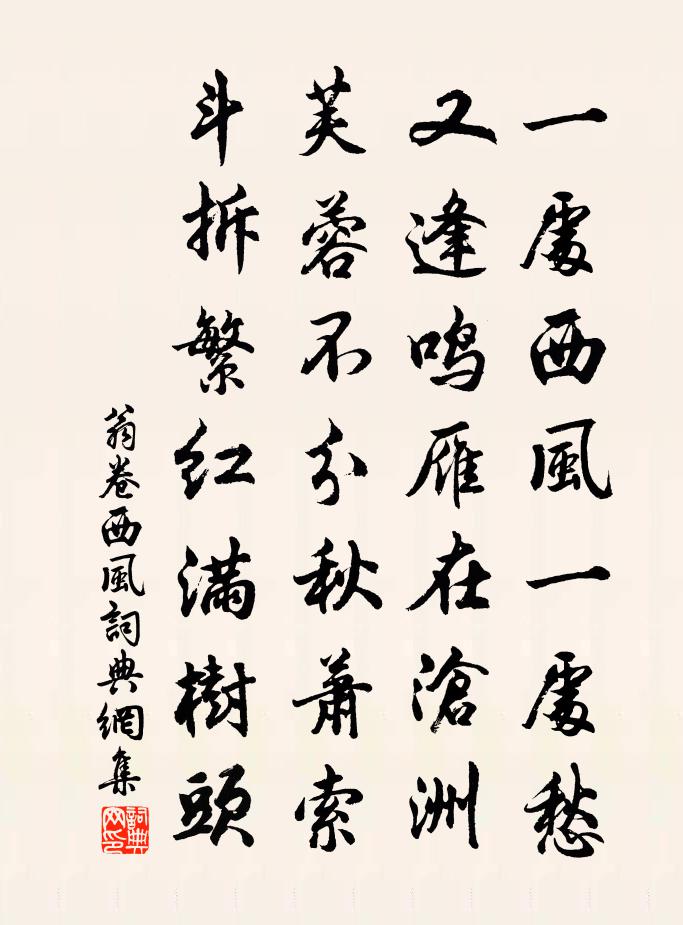 一處西風一處愁
又逢鳴雁在滄洲
芙蓉不分秋蕭索
斗拆繁紅滿樹頭
翁卷西風詞典網集
詞典網印